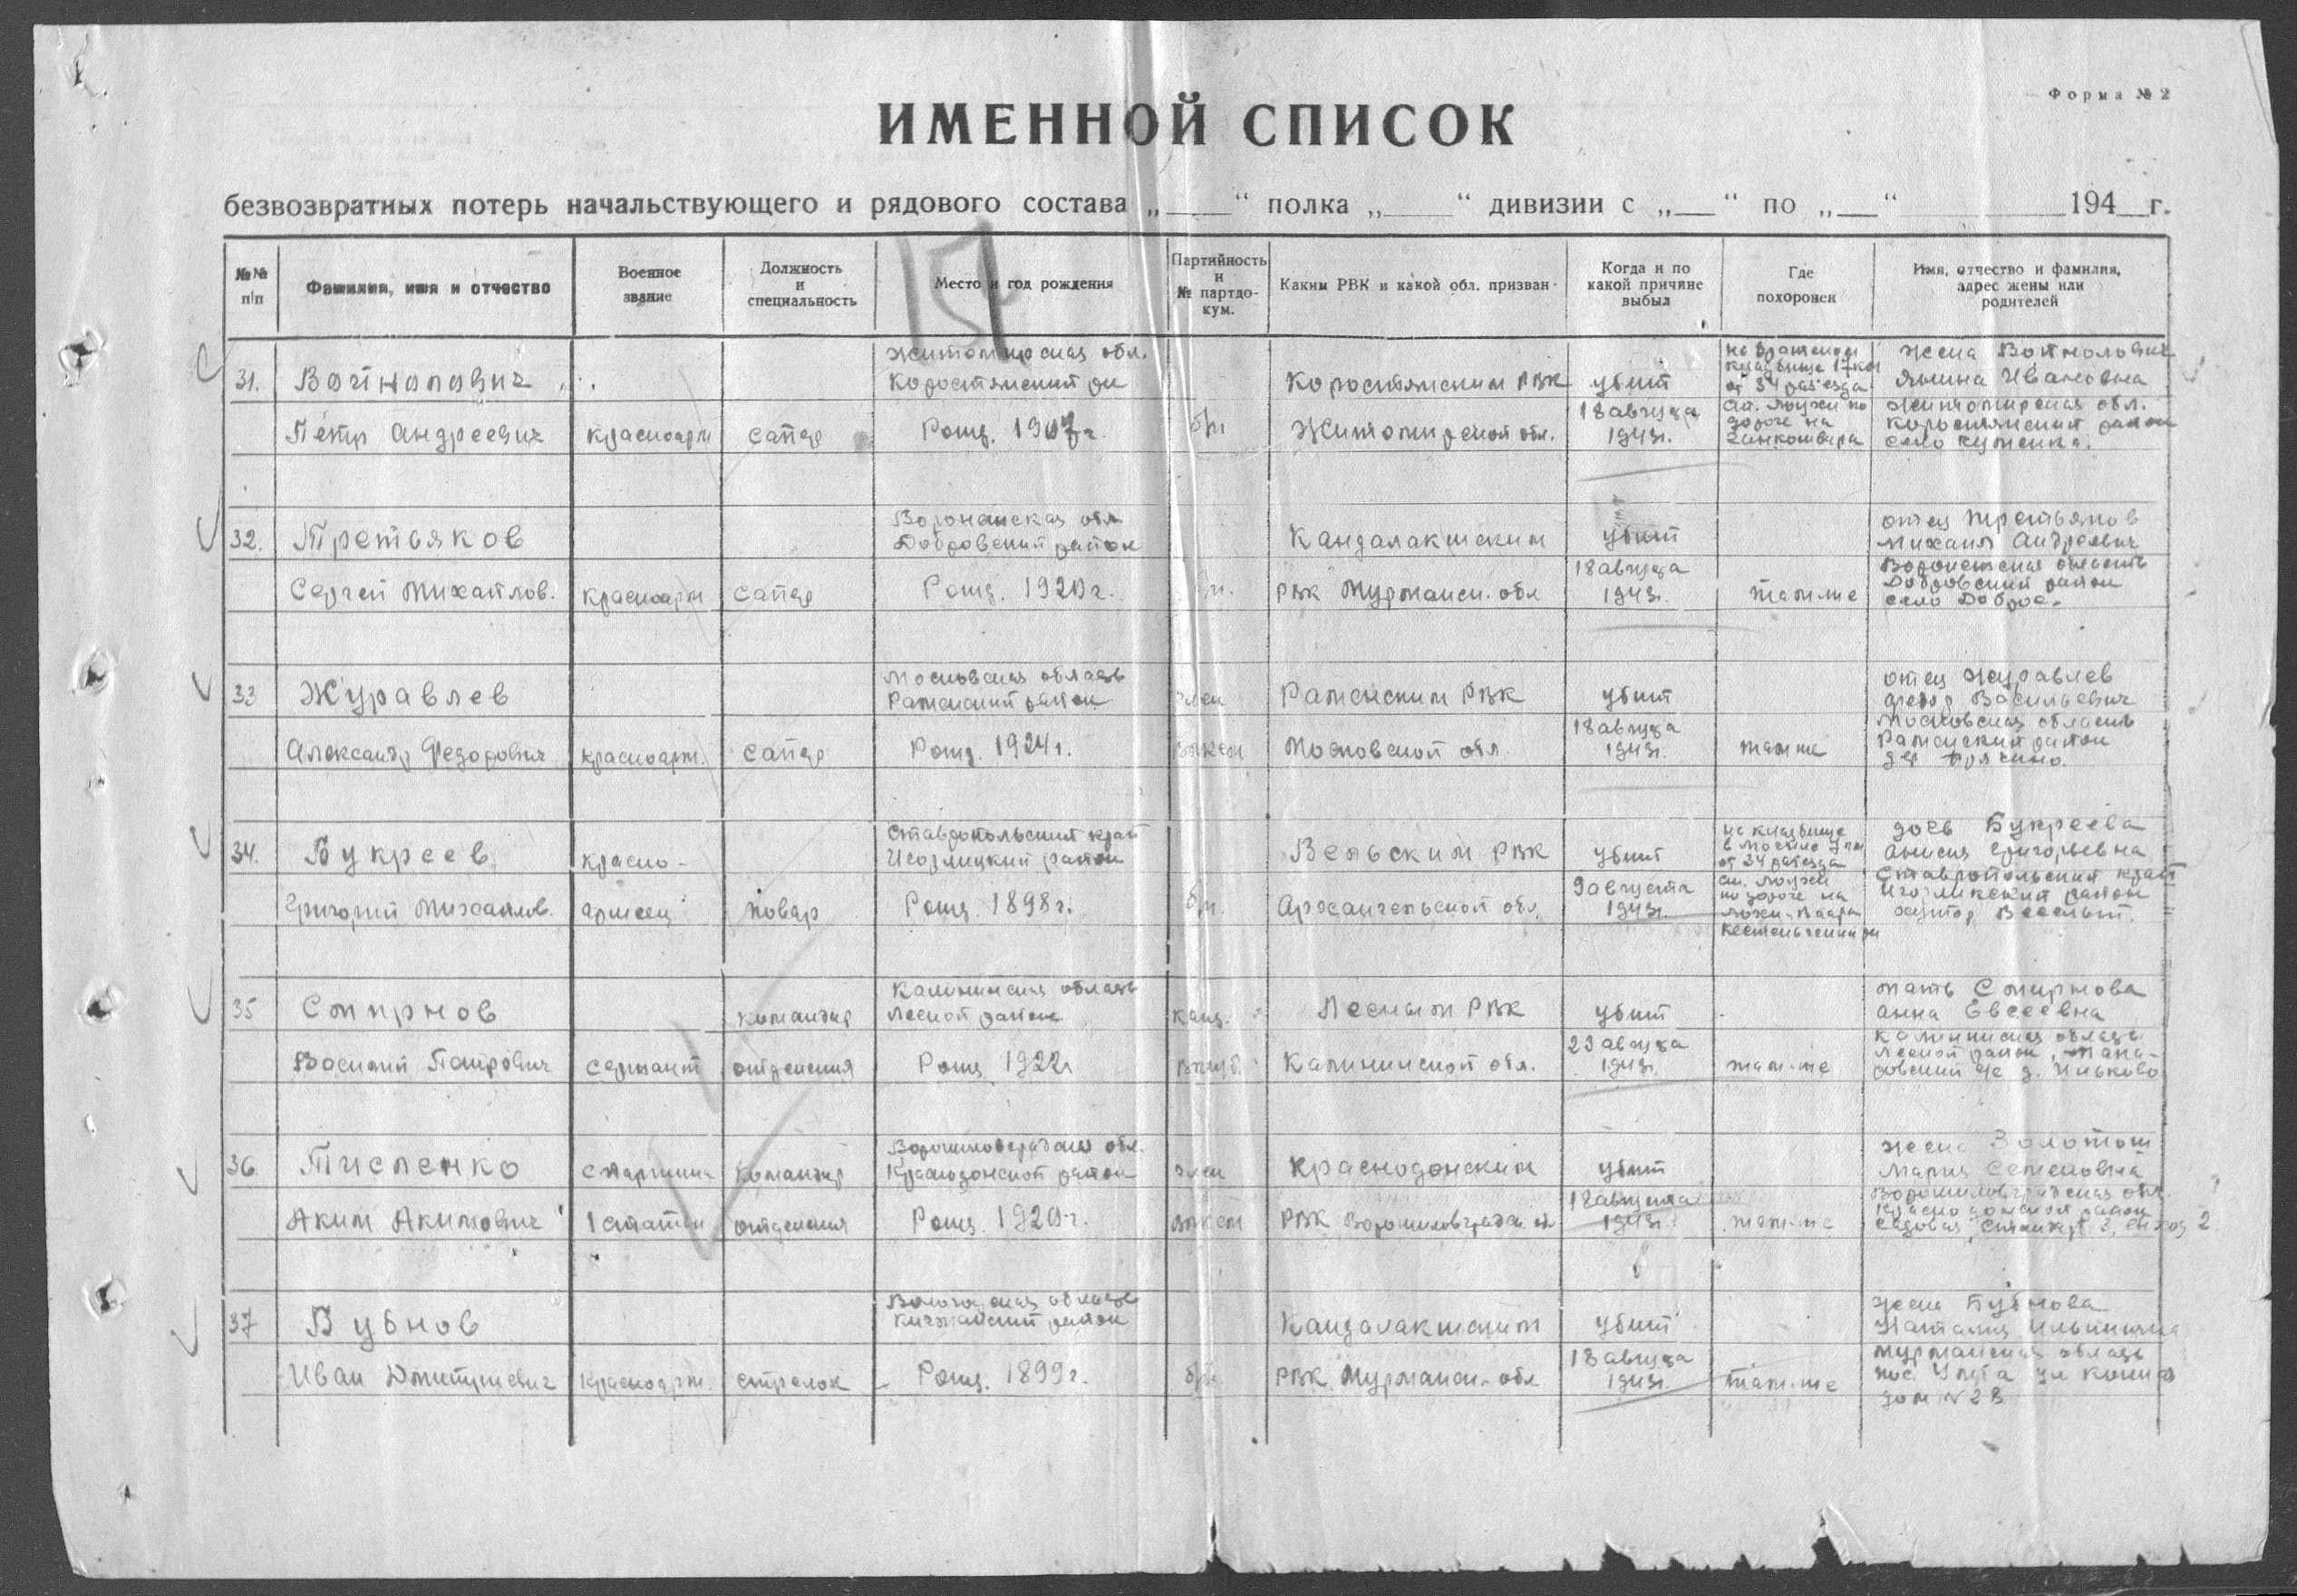 Форма № 2
ИМЕННОЙ СПИСОК
безвозвратных потерь начальствующего и рядового состава „ “ полка „ “ дивизии с „ “ по „ “ 194 г.
№№ п/п
Фамилия, имя и отчество
Военное звание
Должность и специальность
Место и год рождения
Партийность и № партдокум.
Каким РВК и какой обл. призван
Когда и по какой причине выбыл
Где похоронен
Имя, отчество и фамилия, адрес жены или родителей
31. Войналович
Петр Андреевич
красноарм
сапер
Житомирская обл.
Коростянский рн
Рожд. 1907 г.
б/п
Коростянским РВК
Житомирской обл.
убит
18 августа
1943г.
кладбище 17 км
от 34 раз'езда
ст. Лоухи по
дороге на
жена Войналович
Янина Ивановна
Житомирская обл.
Коростянский район
село
32. Третьяков
Сергей Михайлов.
красноарм
сапер
Воронежская обл
Добровский район
Рожд. 1920 г.
Кандалакшским
РВК Мурманск. обл
убит
18 августа
1943г.
там-же
отец Третьяков
Михаил Андреевич
Воронежская область
Добровский район
село Доброе.
33 Журавлев
Александр Федорович
красноарм.
сапер
Московская область
Раменский район
Рожд. 1924 г.
член
влксм
Раменским РВК
Московской обл.
убит
18 августа
1943г.
там же
отец Журавлев
Федор Васильевич
Московская область
Раменский район
дер
34. Букреев
Григорий Михайлов.
красно-
армеец
повар
Ставропольский край
Рожд. 1898 г.
б/п.
Вельским РВК
Архангельской обл.
убит
9 августа
1943г.
на кладбище
в могиле 7 км
от 34 раз'езда
ст. Лоухи
по дороге на
дочь Букреева
Анисия Григорьевна
Ставропольский край
район
хутор Веселый.
35 Смирнов
Василий Петрович
сержант
командир
отделения
Калининская область
Лесной район
Рожд. 1922 г
канд.
вкп/б.
Лесным РВК
Калининской обл.
убит
23 августа
1943г.
там-же
мать Смирнова
Анна Евсеевна
Калининская область
Лесной район,
36 Тисленко
Аким Акимович
старшина
1 статьи
командир
отделения
Ворошиловградская обл.
Краснодонский район
Рожд. 1920 г.
член
влксм
Краснодонским
РВК Ворошиловградск. об
убит
18 августа
1943г.
там-же
жена
Мария Семеновна
Ворошиловградская обл.
Краснодонский район
37 Бубнов
Иван Дмитриевич
красноарм.
стрелок
Вологодская область
район
Рожд. 1899 г.
б/п.
Кандалакшским
РВК Мурманск. обл
убит
18 августа
1943г.
там-же
жена Бубнова
Наталия Ильинична
Мурманская область
дом №28